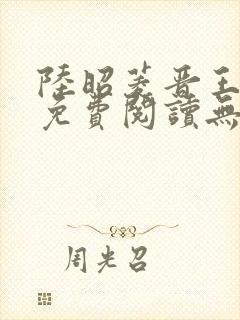 陸昭菱晉王
免費閱讀無
周光召